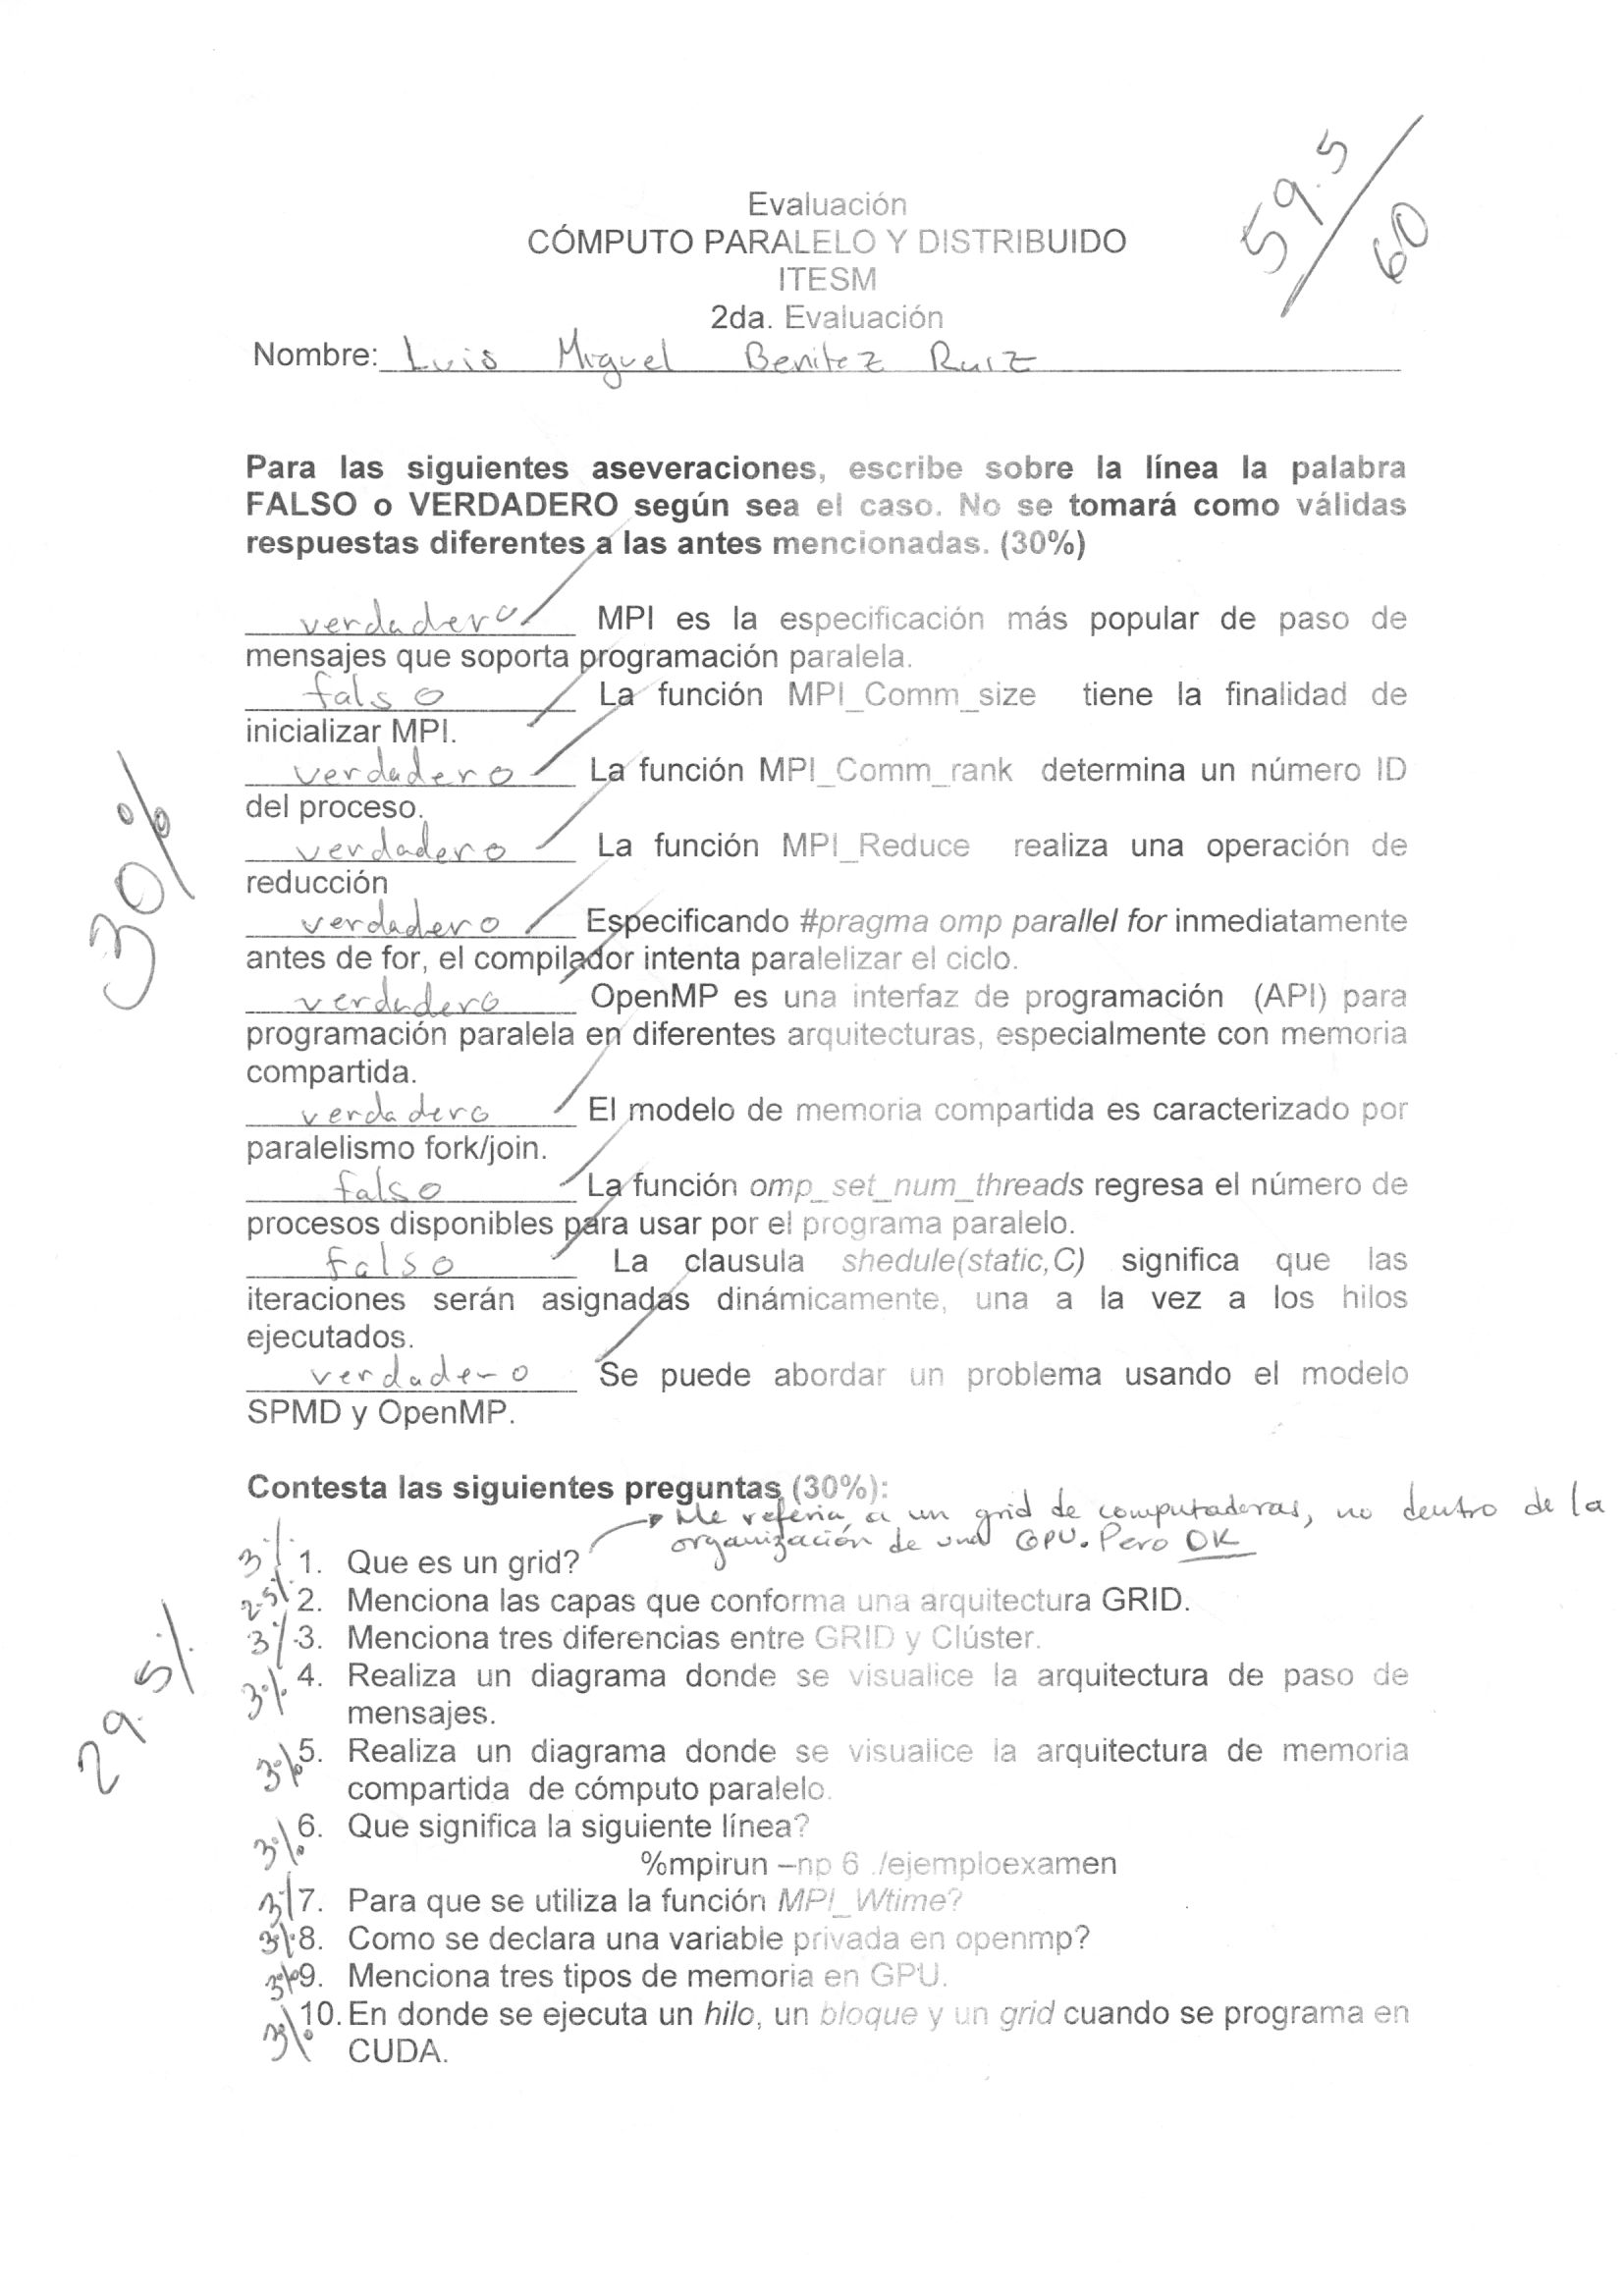 59.5/60
Evaluación
CÓMPUTO PARALELO Y DISTRIBUIDO
ITESM
2da. Evaluación
Nombre: Luis Miguel Benitez Ruiz
Para las siguientes aseveraciones, escribe sobre la línea la palabra
FALSO o VERDADERO según sea el caso. No se tomará como válidas
respuestas diferentes a las antes mencionadas. (30%)
verdadero MPI es la especificación más popular de paso de
mensajes que soporta programación paralela.
falso La función MPI_Comm_size tiene la finalidad de
inicializar MPI.
verdadero La función MPI_Comm_rank determina un número ID
del proceso.
verdadero La función MPI_Reduce realiza una operación de
reducción
verdadero Especificando #pragma omp parallel for inmediatamente
antes de for, el compilador intenta paralelizar el ciclo.
verdadero OpenMP es una interfaz de programación (API) para
programación paralela en diferentes arquitecturas, especialmente con memoria
compartida.
verdadero El modelo de memoria compartida es caracterizado por
paralelismo fork/join.
falso La función omp_set_num_threads regresa el número de
procesos disponibles para usar por el programa paralelo.
falso La clausula shedule(static,C) significa que las
iteraciones serán asignadas dinámicamente, una a la vez a los hilos
ejecutados.
verdadero Se puede abordar un problema usando el modelo
SPMD y OpenMP.
30%
Contesta las siguientes preguntas (30%):
Me referia a un grid de computadoras, no dentro de la
organización de una GPU. Pero OK
3% 1. Que es un grid?
2.5% 2. Menciona las capas que conforma una arquitectura GRID.
3% 3. Menciona tres diferencias entre GRID y Clúster.
3% 4. Realiza un diagrama donde se visualice la arquitectura de paso de
mensajes.
3% 5. Realiza un diagrama donde se visualice la arquitectura de memoria
compartida de cómputo paralelo.
3% 6. Que significa la siguiente línea?
%mpirun –np 6 ./ejemploexamen
3% 7. Para que se utiliza la función MPI_Wtime?
3% 8. Como se declara una variable privada en openmp?
3% 9. Menciona tres tipos de memoria en GPU.
3% 10. En donde se ejecuta un hilo, un bloque y un grid cuando se programa en
CUDA.
29.5%